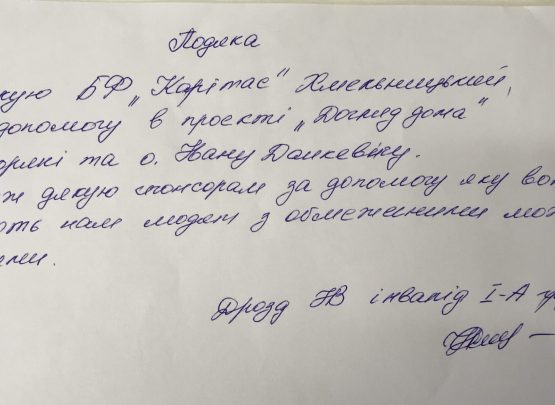 Подяка
кую БФ „Карітас" Хмельницький,
допомогу в проєкті „Догляд дома"
та о. Івану Данкевичу.
ж дякую спонсорам за допомогу яку
ють нам людям з обмеженими мож
ями.
Дрозд НВ інвалід I-А гр